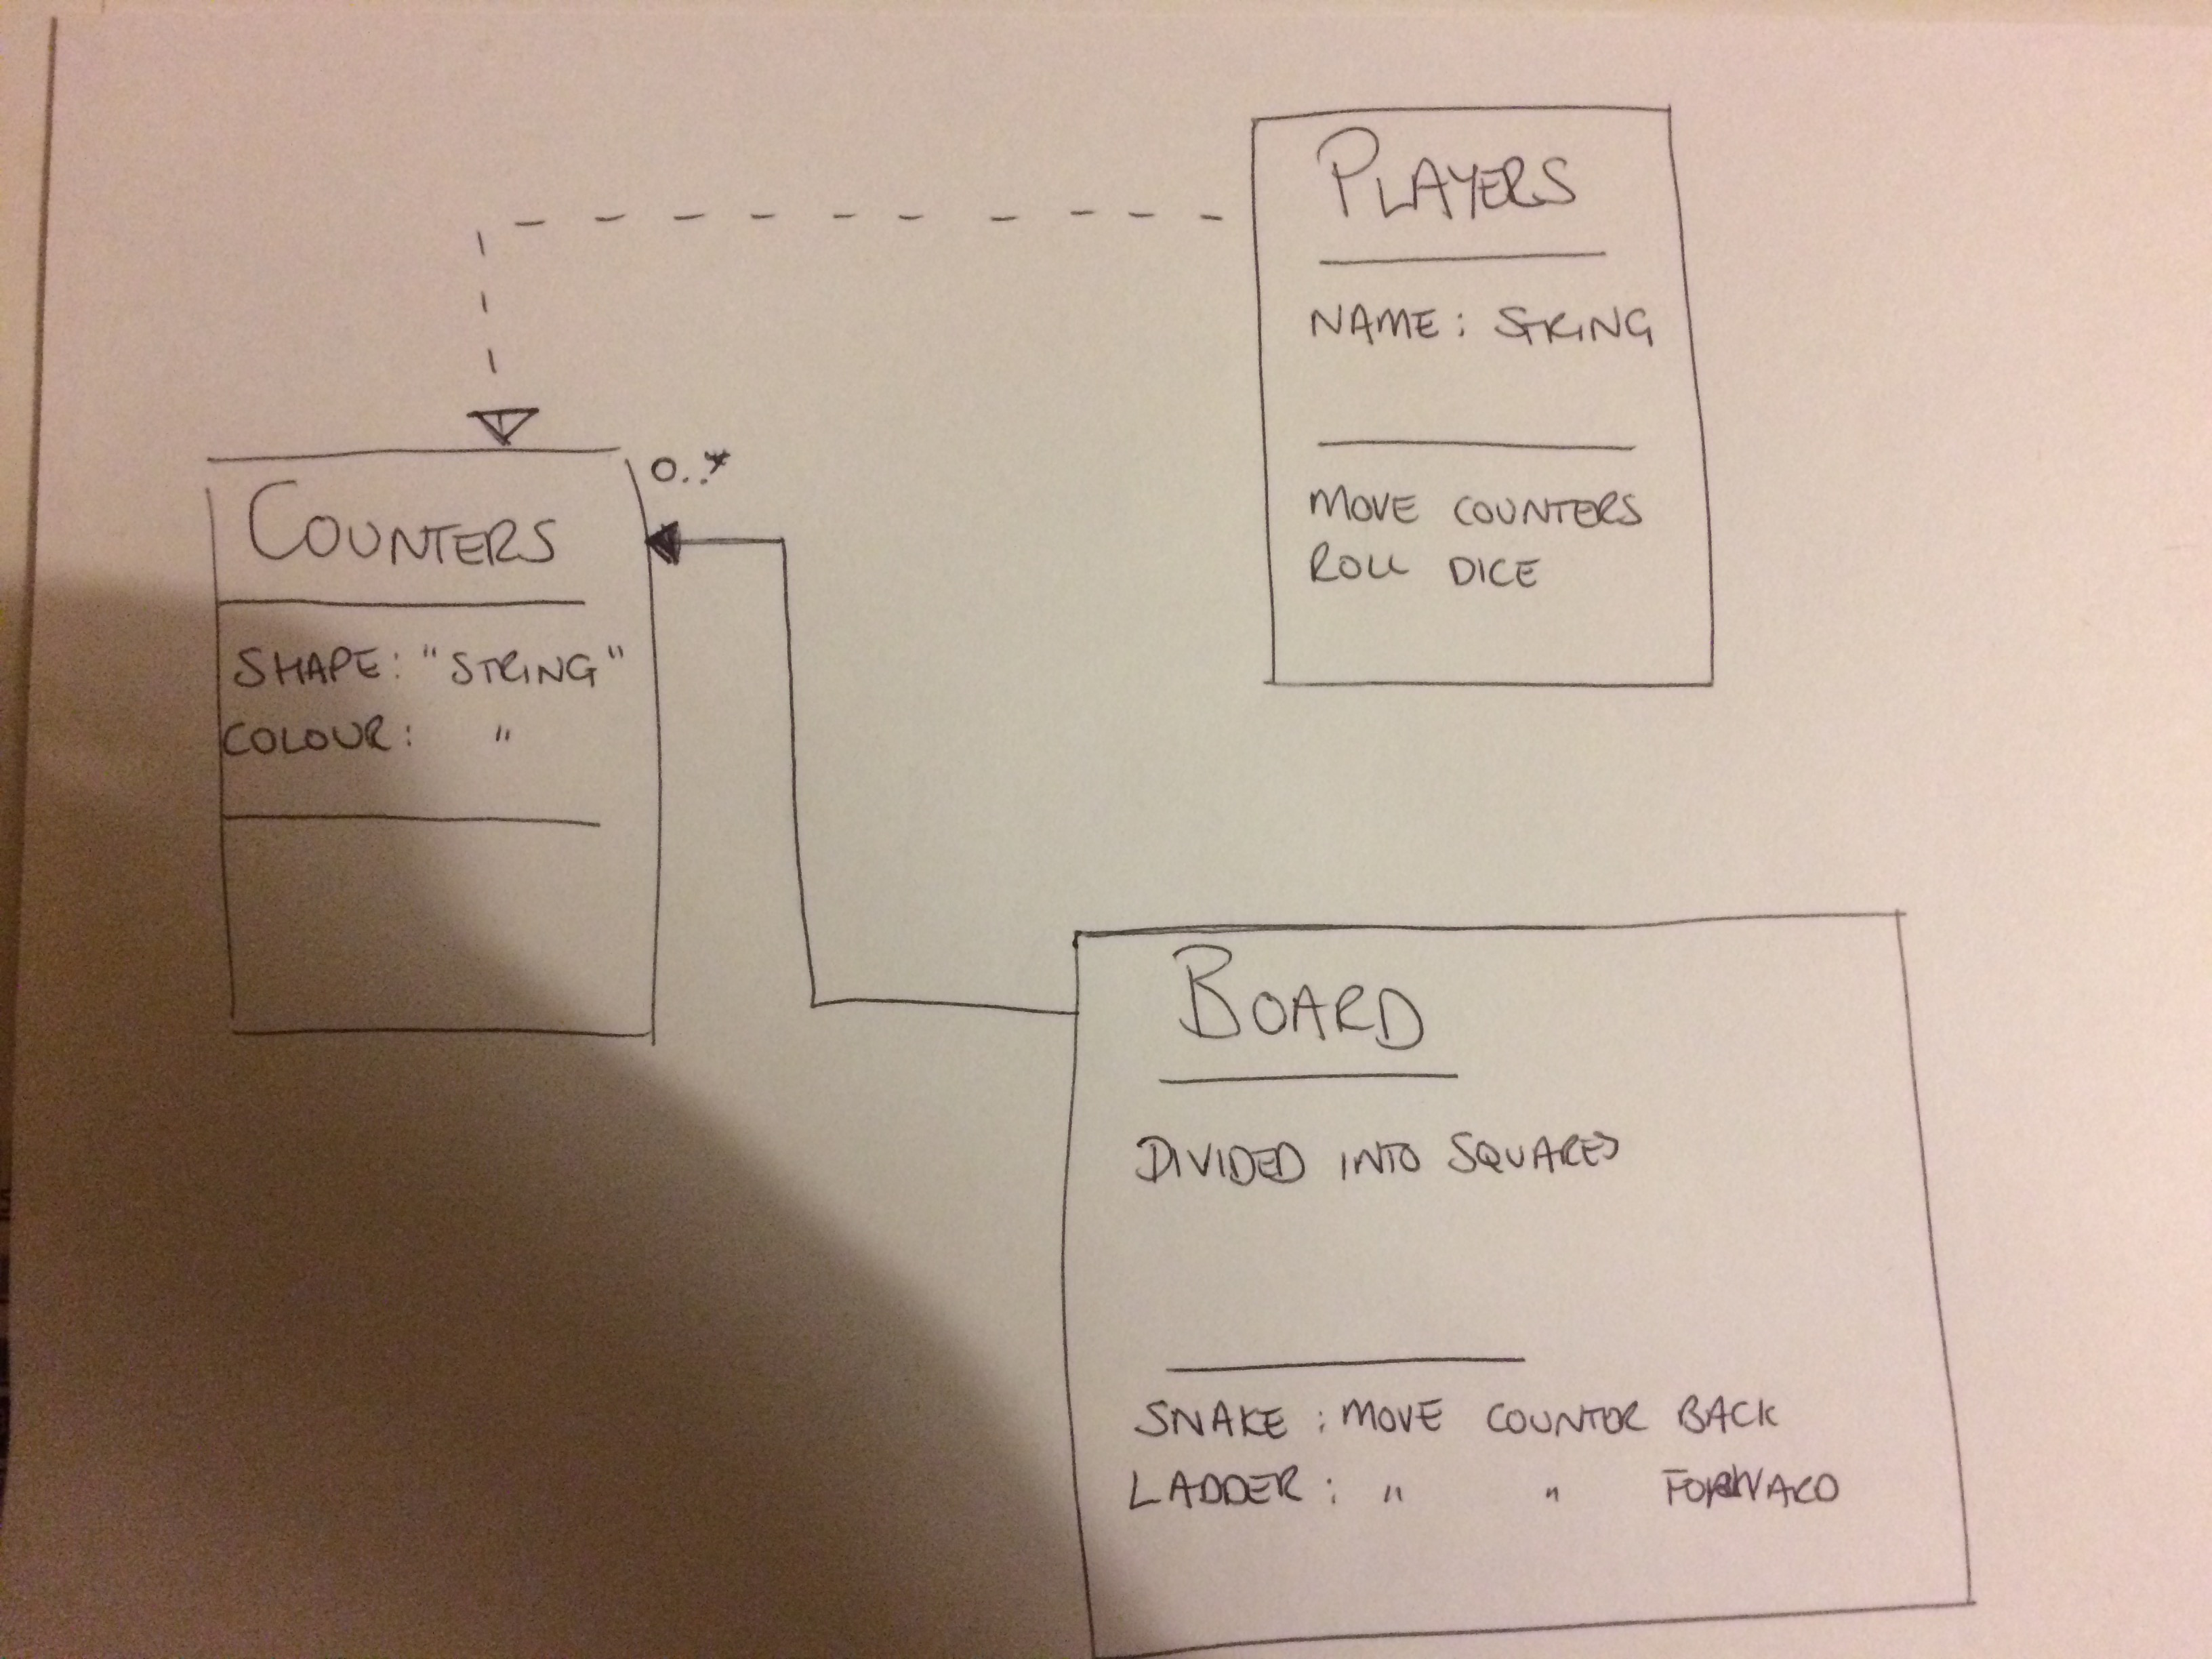 PLAYERS
NAME: STRING
MOVE COUNTERS
ROLL DICE
0..*
COUNTERS
SHAPE: "STRING"
COLOUR: "
BOARD
DIVIDED INTO SQUARES
SNAKE: MOVE COUNTER BACK
LADDER: " " FORWARD